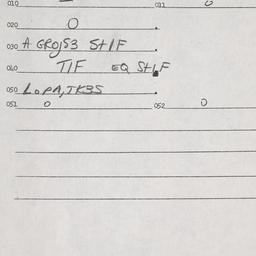 010 011 0
020 0
030 A GROJS3 St/F
040 T/F EQ St/F
050 LOPA, JK3S
051 0 052 0